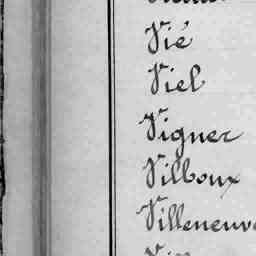 Vié
Viel
Vigner
Vilboux
Villeneuve